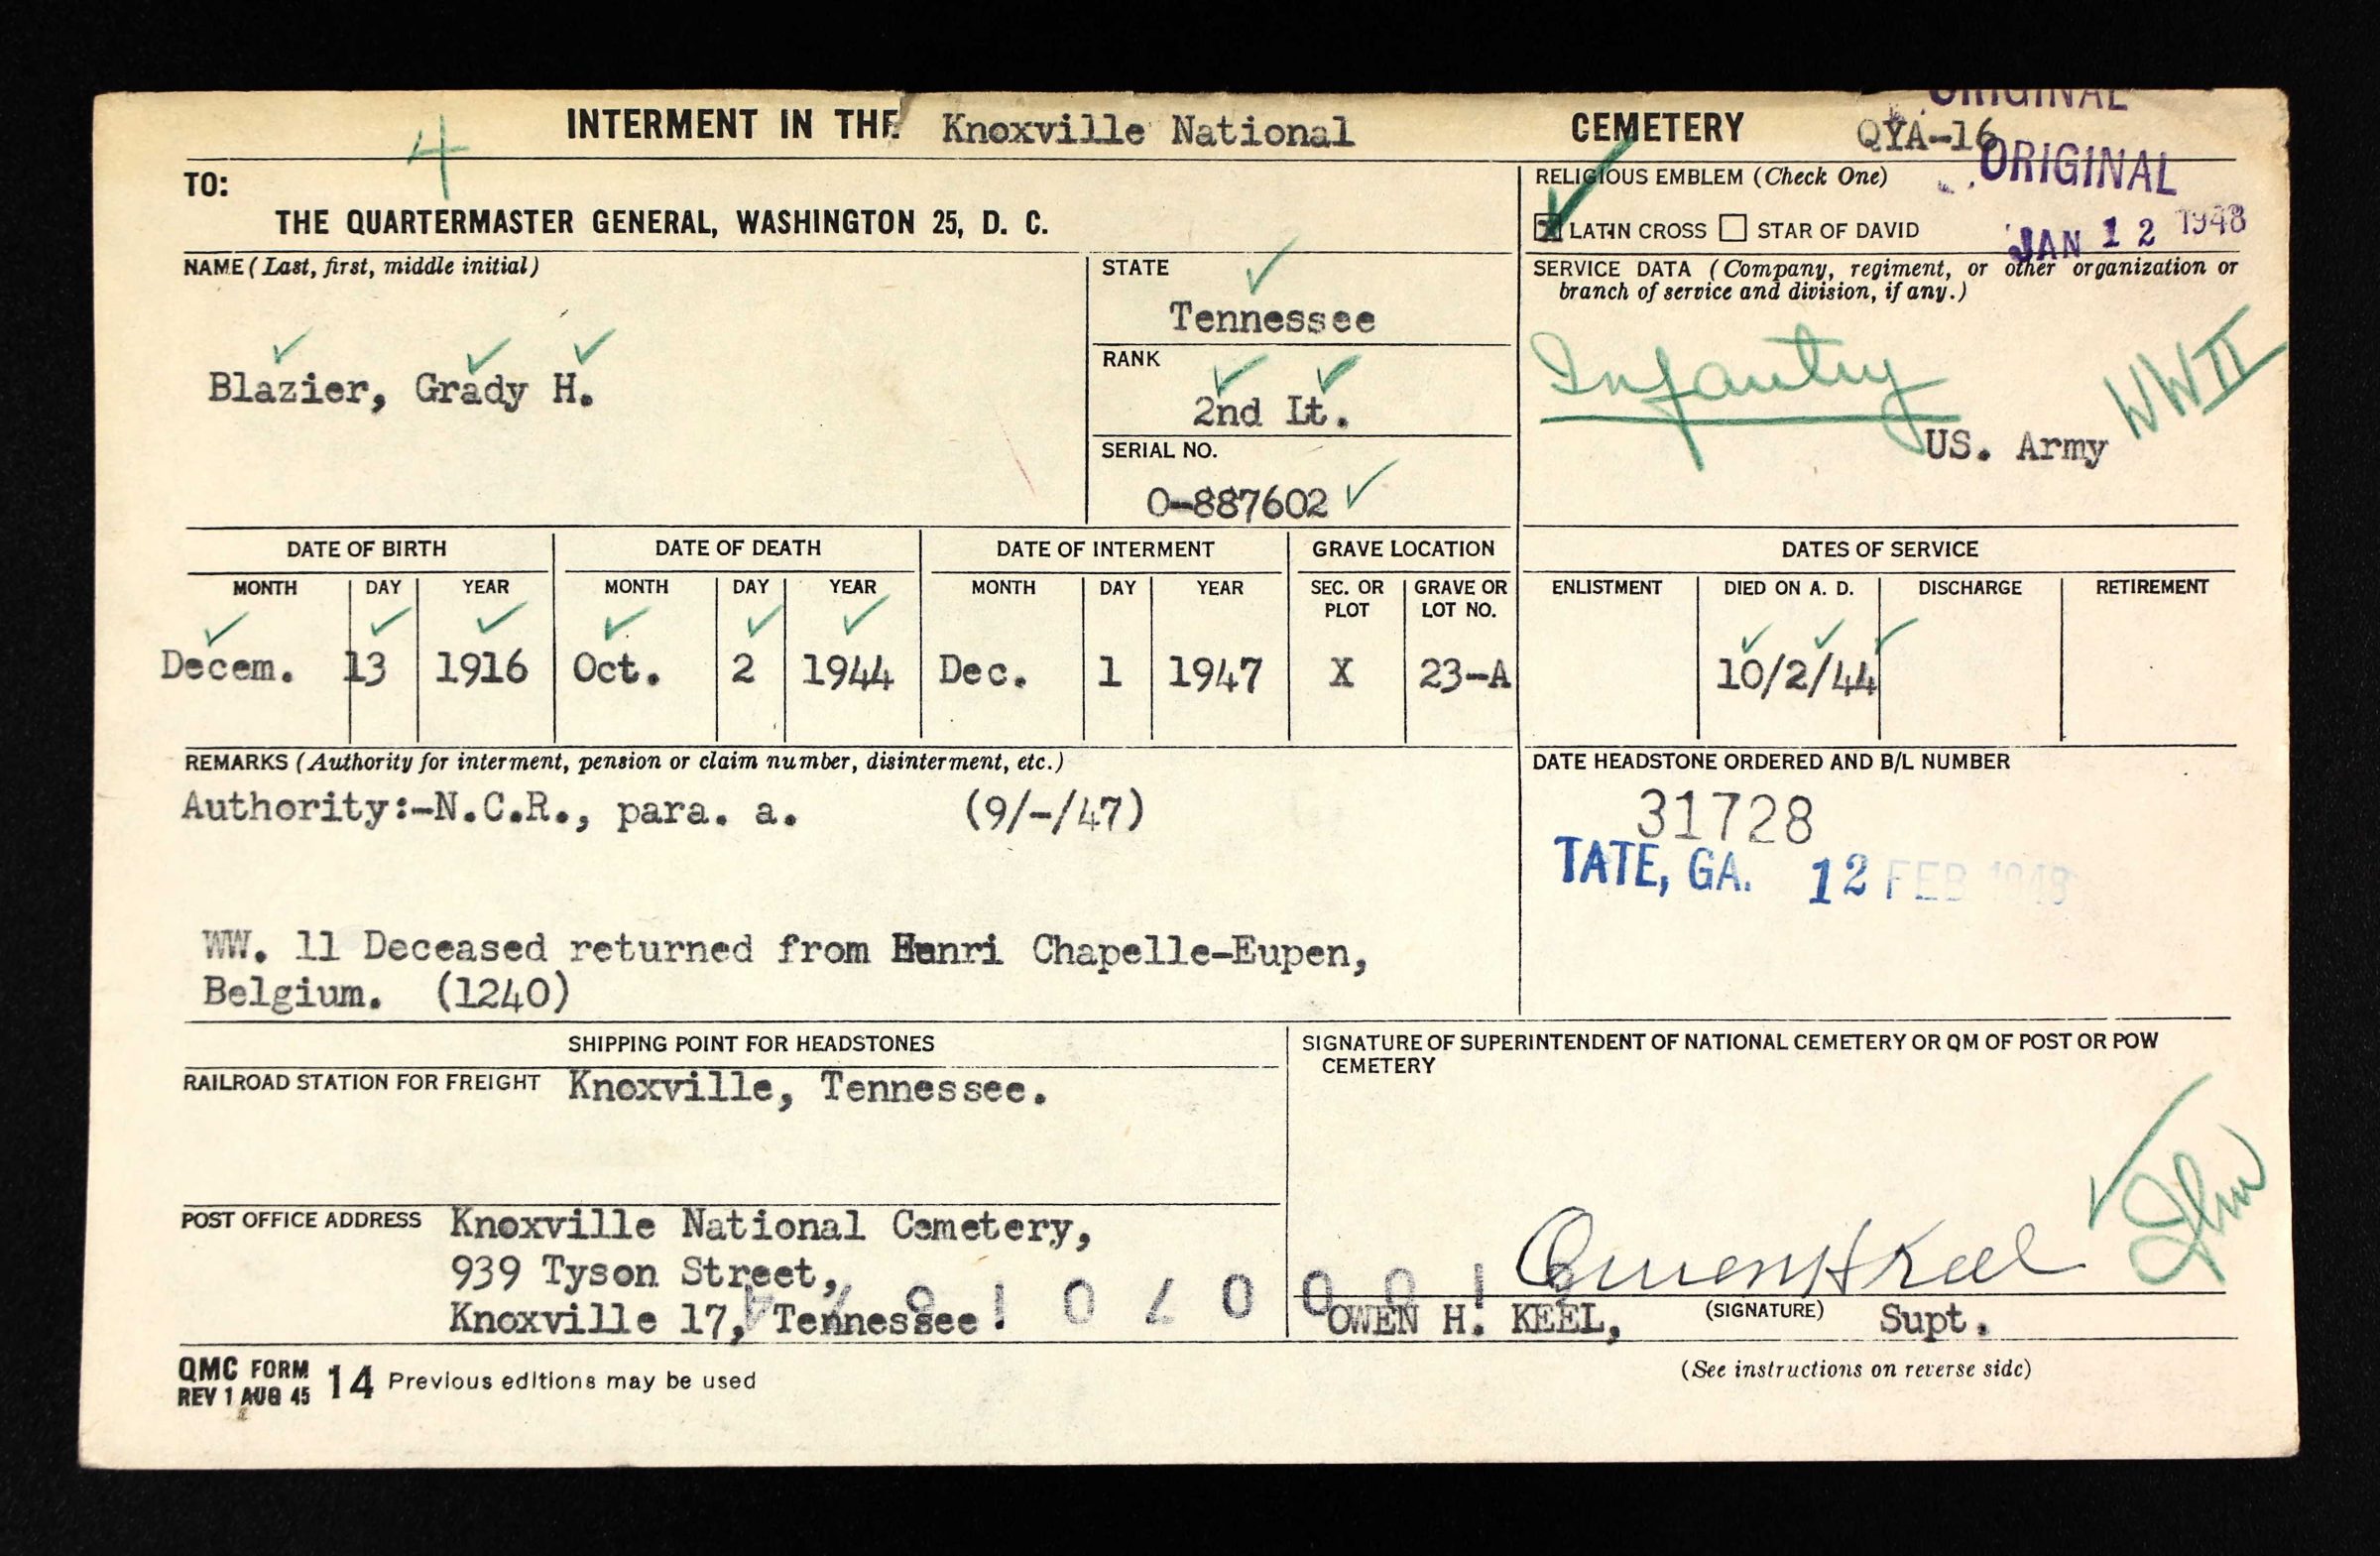 ORIGINAL
INTERMENT IN THE Knoxville National CEMETERY QYA-16
ORIGINAL
JAN 12 1948
4
TO:
THE QUARTERMASTER GENERAL, WASHINGTON 25, D. C.
RELIGIOUS EMBLEM (Check One)
X LATIN CROSS STAR OF DAVID
NAME (Last, first, middle initial)
Blazier, Grady H.
STATE
Tennessee
RANK
2nd Lt.
SERIAL NO.
O-887602
SERVICE DATA (Company, regiment, or other organization or
branch of service and division, if any.)
Infantry
WW II
US. Army
DATE OF BIRTH DATE OF DEATH DATE OF INTERMENT GRAVE LOCATION DATES OF SERVICE
MONTH DAY YEAR MONTH DAY YEAR MONTH DAY YEAR SEC. OR PLOT GRAVE OR LOT NO. ENLISTMENT DIED ON A. D. DISCHARGE RETIREMENT
Decem. 13 1916 Oct. 2 1944 Dec. 1 1947 X 23-A 10/2/44
REMARKS (Authority for interment, pension or claim number, disinterment, etc.)
Authority:-N.C.R., para. a. (9/-/47)
WW. 11 Deceased returned from Henri Chapelle-Eupen,
Belgium. (1240)
DATE HEADSTONE ORDERED AND B/L NUMBER
31728
TATE, GA. 12 FEB 1948
SHIPPING POINT FOR HEADSTONES
RAILROAD STATION FOR FREIGHT Knoxville, Tennessee.
POST OFFICE ADDRESS Knoxville National Cemetery,
939 Tyson Street,
Knoxville 17, Tennessee.
SIGNATURE OF SUPERINTENDENT OF NATIONAL CEMETERY OR QM OF POST OR POW
CEMETERY
Owen H Keel
OWEN H. KEEL, (SIGNATURE) Supt.
QMC FORM
REV 1 AUG 45 14 Previous editions may be used
(See instructions on reverse side)